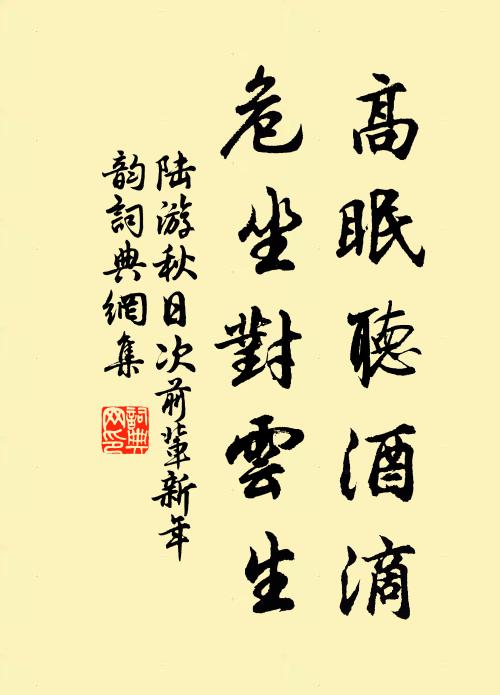 高眠聽酒滴
危坐對雲生
陆游秋日次前輩新年
韵詞典網集
詞典网印